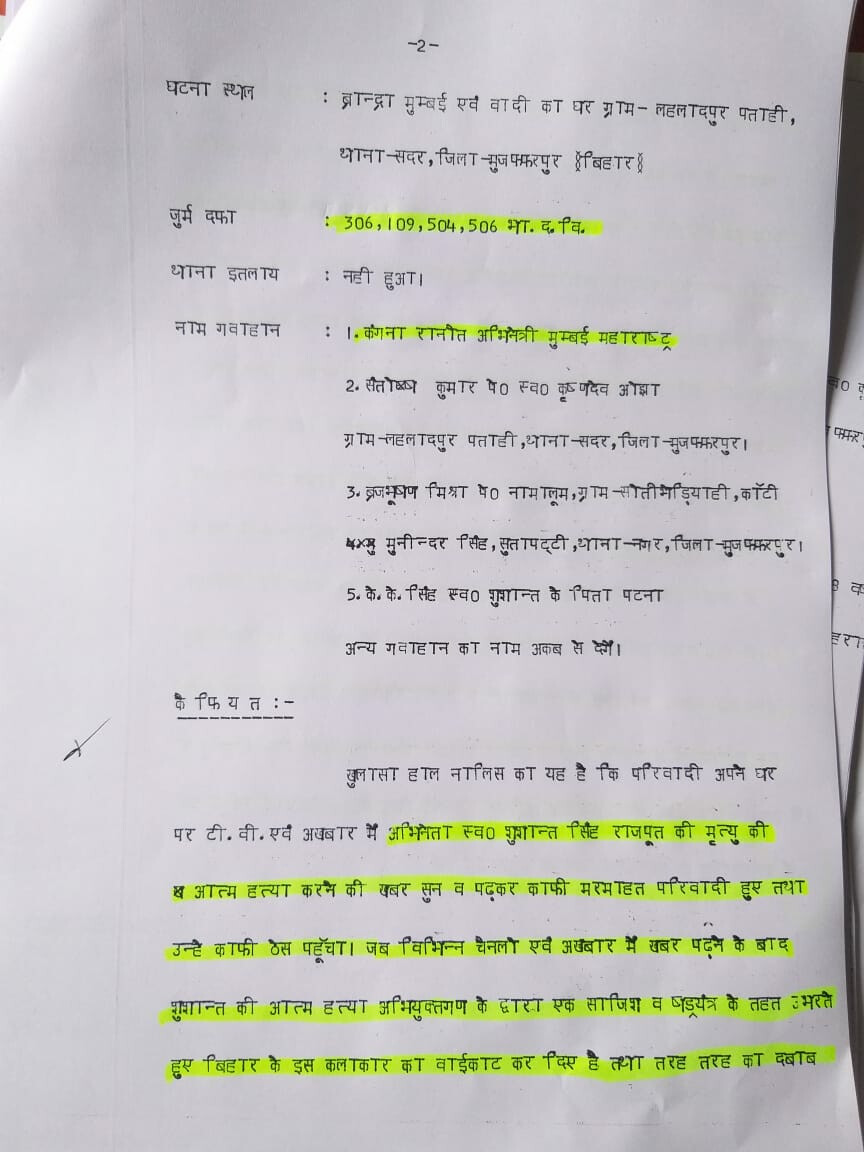 -2-
घटना स्थल : ब्रान्द्रा मुम्बई एवं वादी का घर ग्राम- लहलादपुर पताही,
थाना-सदर,जिला-मुजफ्फरपुर (बिहार)
जुर्म दफा : 306,109,504,506 भा.द.वि.
थाना इतलाय : नही हुआ।
नाम गवाहान : 1.कंगना रानौत अभिनेत्री मुम्बई महाराष्ट्र
2. संतोष कुमार पे0 स्व0 कृष्णदेव ओझा
ग्राम-लहलादपुर पताही,थाना-सदर,जिला-मुजफ्फरपुर।
3. ब्रजभूषण मिश्रा पे0 नामालूम,ग्राम-सोतीभेड़ियाही,काँटी
मुनीन्दर सिंह,सुतापट्टी,थाना-नगर,जिला-मुजफ्फरपुर।
5. के.के.सिंह स्व0 शुशान्त के पिता पटना
अन्य गवाहान का नाम अकब से देगें।
कै फि य त :-
खुलासा हाल नालिस का यह है कि परिवादी अपने घर
पर टी.वी.एवं अखबार में अभिनेता स्व0 शुशान्त सिंह राजपूत की मृत्यु की
आत्म हत्या करने की खबर सुन व पढ़कर काफी मरमाहत परिवादी हुए तथा
उन्हे काफी ठेस पहूँचा। जब विभिन्न चैनलो एवं अखबार में खबर पढ़ने के बाद
शुशान्त की आत्म हत्या अभियुक्तगण के द्वारा एक साजिश व षड्यंत्र के तहत उभरते
हुए बिहार के इस कलाकार का वाईकाट कर दिए है तथा तरह तरह का दबाब